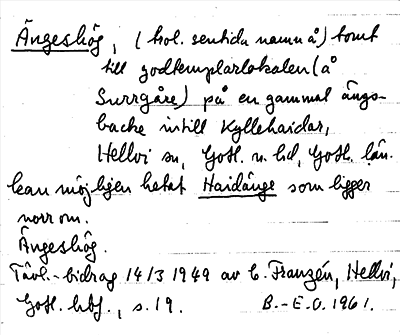 Ängeshög, (trol. sentida namn å) tomt
till godtemplarlokalen (å
Surrgåre) på en gammal ängs-
backe intill Kyllehaidar,
Hellvi sn, Gotl. n. hd, Gotl. län.
kan möjligen hetat Haidänge som ligger
norr om.
Ängeshög.
Tävl.-bidrag 14/3 1949 av C. Franzén, Hellvi,
Gotl. hbf., s. 19. B.-E.O. 1961.